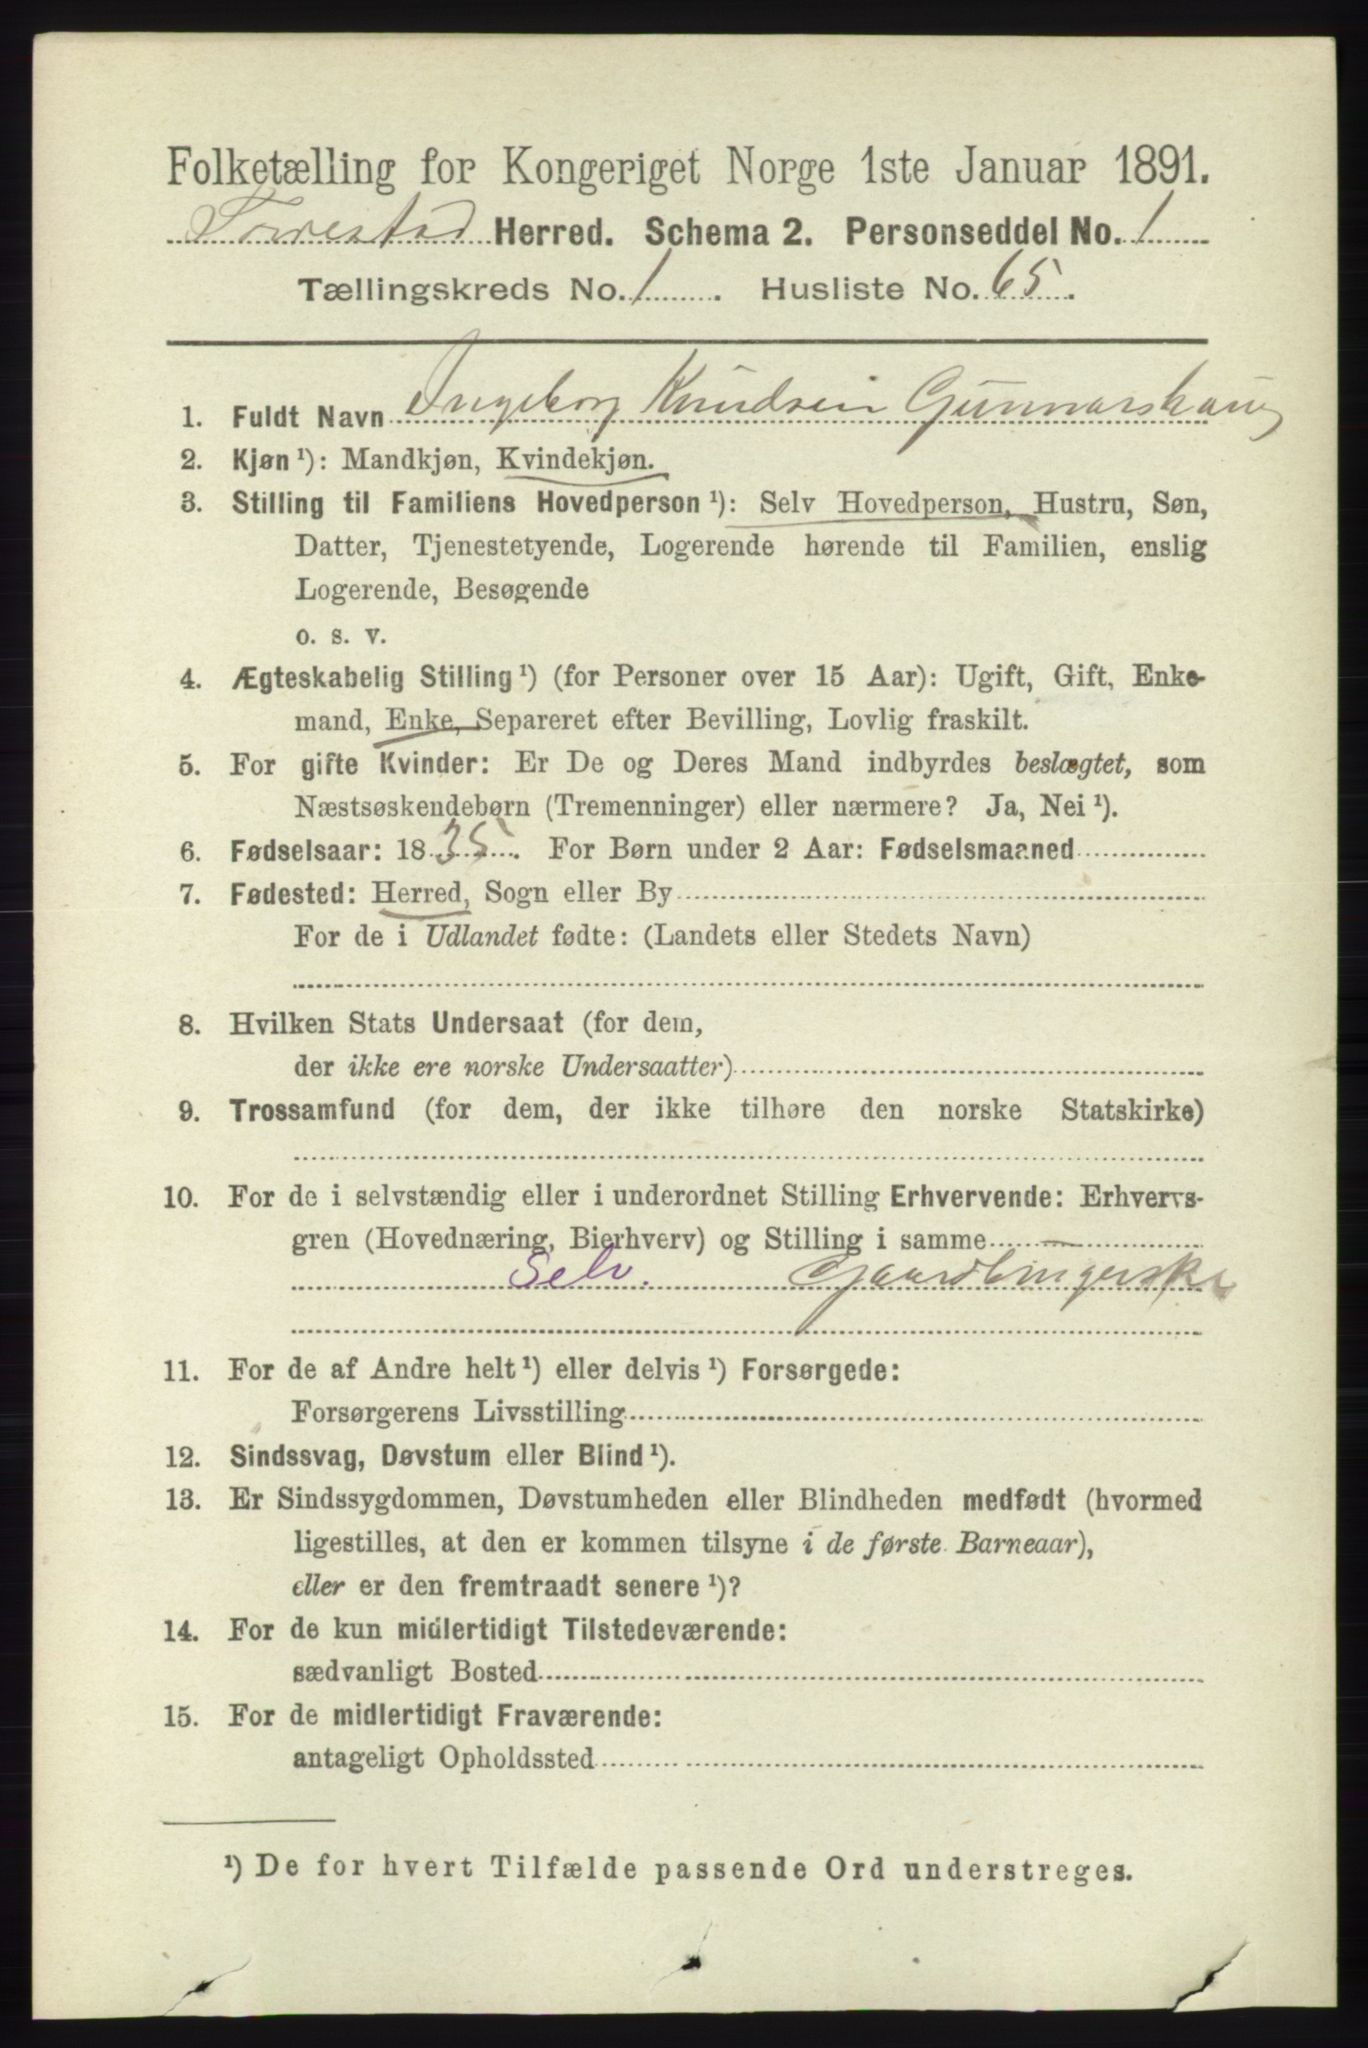 Folketælling for Kongeriget Norge 1ste Januar 1891.
Torvestad Herred. Schema 2. Personseddel No. 1
Tællingskreds No. 1. Husliste No. 65.
1. Fuldt Navn Ingeborg Knudsen Gunnarshaug
2. Kjøn ¹): Mandkjøn, Kvindekjøn.
3. Stilling til Familiens Hovedperson ¹): Selv Hovedperson, Hustru, Søn,
Datter, Tjenestetyende, Logerende hørende til Familien, enslig
Logerende, Besøgende
o. s. v.
4. Ægteskabelig Stilling ¹) (for Personer over 15 Aar): Ugift, Gift, Enke-
mand, Enke, Separeret efter Bevilling, Lovlig fraskilt.
5. For gifte Kvinder: Er De og Deres Mand indbyrdes beslægtet, som
Næstsøskendebørn (Tremenninger) eller nærmere? Ja, Nei ¹).
6. Fødselsaar: 1835. For Børn under 2 Aar: Fødselsmaaned
7. Fødested: Herred, Sogn eller By
For de i Udlandet fødte: (Landets eller Stedets Navn)
8. Hvilken Stats Undersaat (for dem,
der ikke ere norske Undersaatter)
9. Trossamfund (for dem, der ikke tilhøre den norske Statskirke)
10. For de i selvstændig eller i underordnet Stilling Erhvervende: Erhvervs-
gren (Hovednæring, Bierhverv) og Stilling i samme —
Selv. Gaardbrugerske
11. For de af Andre helt ¹) eller delvis ¹) Forsørgede:
Forsørgerens Livsstilling
12. Sindssvag, Døvstum eller Blind ¹).
13. Er Sindssygdommen, Døvstumheden eller Blindheden medfødt (hvormed
ligestilles, at den er kommen tilsyne i de første Barneaar),
eller er den fremtraadt senere ¹)?
14. For de kun midlertidigt Tilstedeværende:
sædvanligt Bosted
15. For de midlertidigt Fraværende:
antageligt Opholdssted
¹) De for hvert Tilfælde passende Ord understreges.